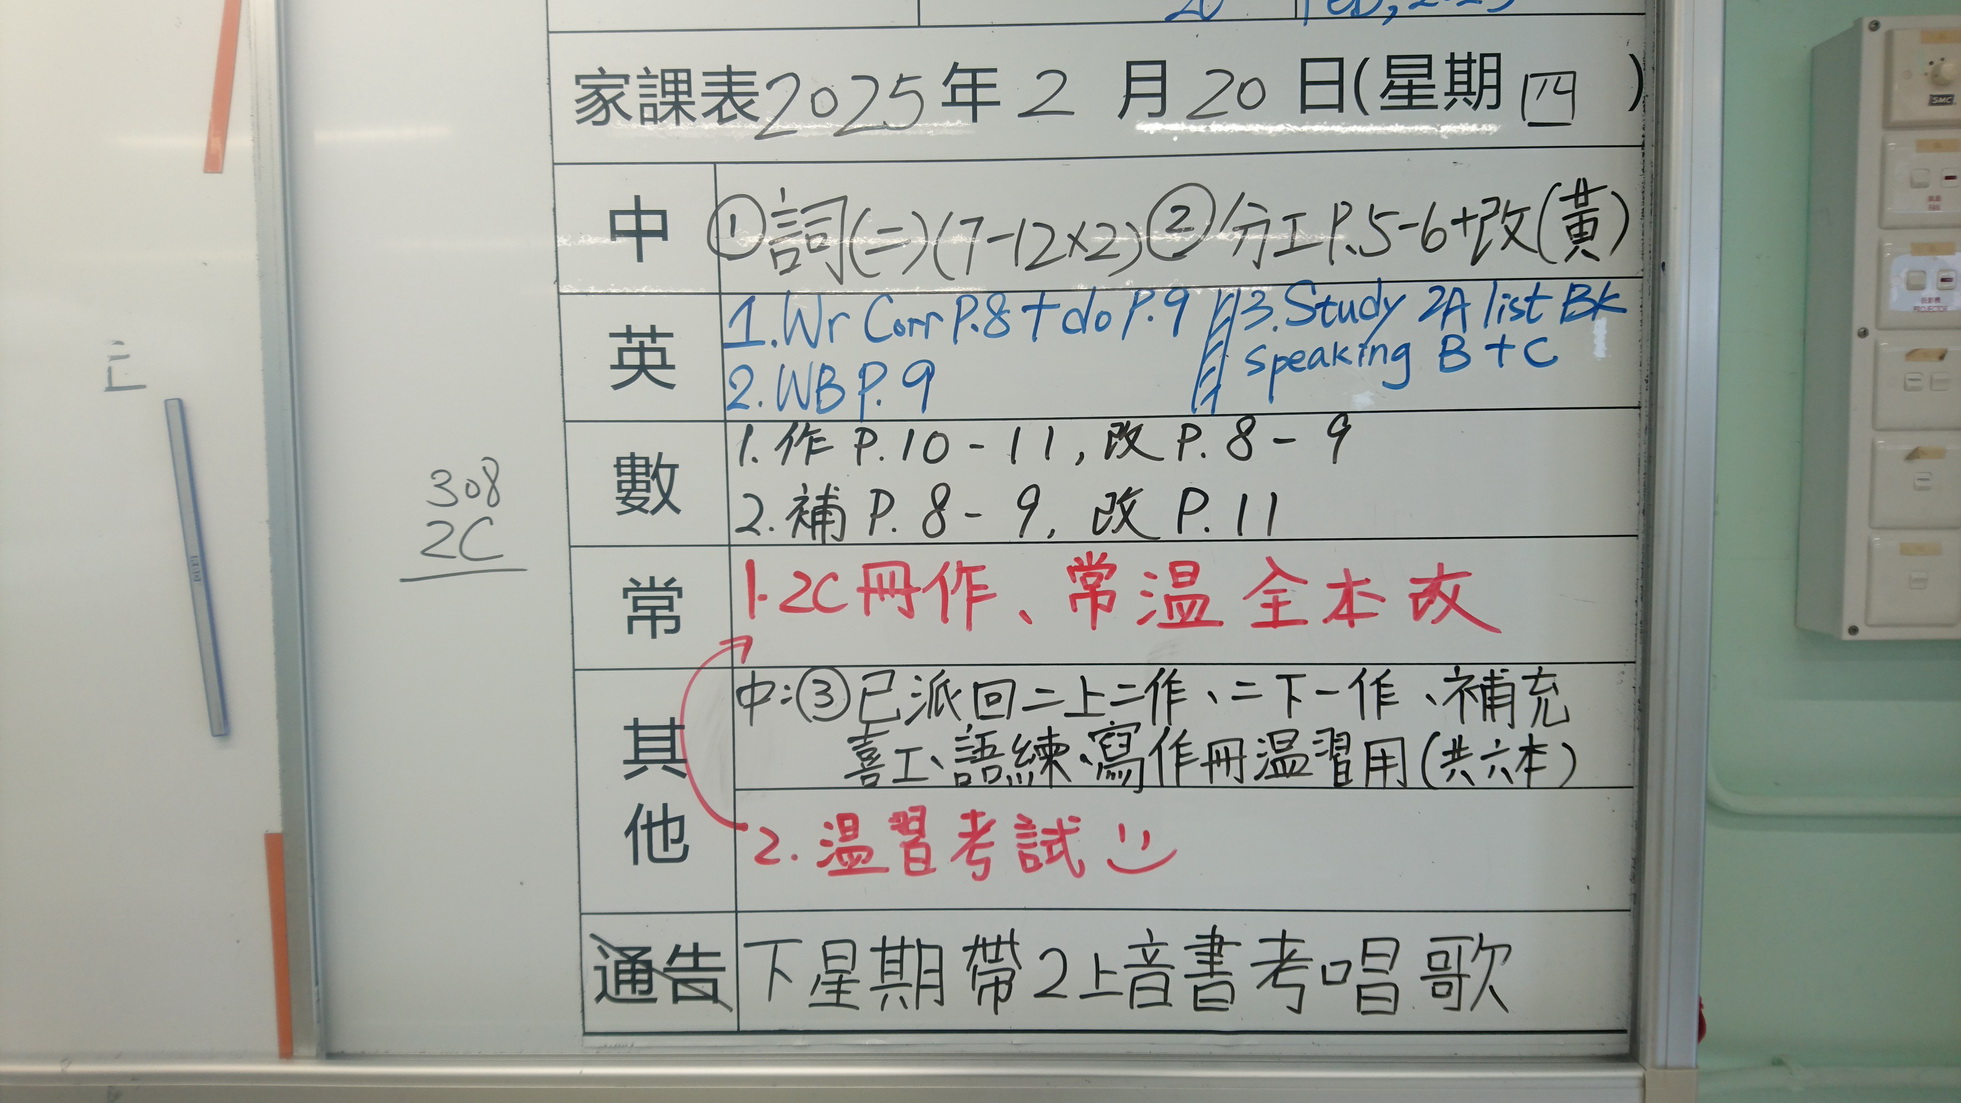 家課表2025年2月20日(星期四)
中 ①詞(二)(7-12×2)②分工P.5-6+改(黃)
英 1.Wr Corr P.8+do P.9
2.WB P.9
3.Study 2A list BK
speaking B+C
數 1.作P.10-11,改P.8-9
2.補P.8-9,改P.11
常 1.2C冊作、常温全本改
其他 中:③已派回二上二作、二下一作、補充
喜工、語練、寫作冊温習用(共六本)
2.温習考試
通告 下星期帶2上音書考唱歌
308
2C